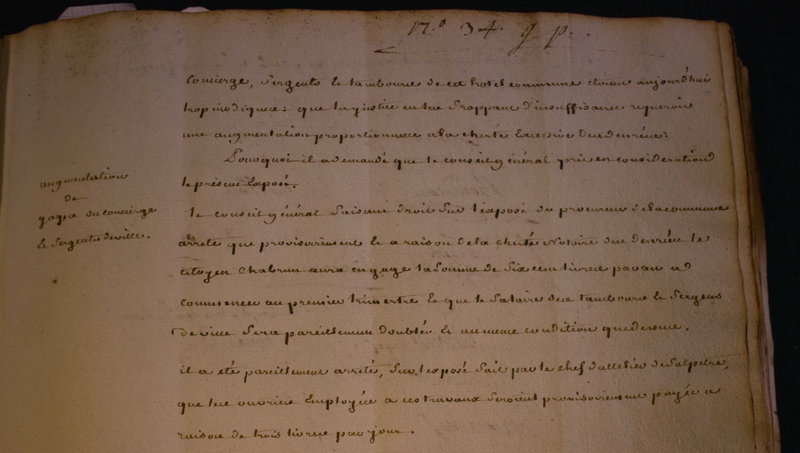 17.º 34. g p.
Concierge, Sergents et tambours de cet hotel commune etoient aujourd'hui
trop modiques: que la justice en seu frappant d'insuffisance requeroit
une augmentation proportionnée a la cherté Excessive des denrées:
Pourquoi il a demandé que le conseil général prit en consideration
le présent Exposé.
augmentation
de
gages du concierge
et Sergents de ville.
le conseil général faisant droit sur l'exposé du procureur de la commune
arrete que provisoirement et a raison de la cherté Notoire des denrées le
citoyen Chabrun aura en gage la Somme de Six cent livres par an a
commencer au premier trimestre et que le Salaire des tambours et Sergens
de ville Sera pareillement doublé et au meme condition que dessus.
il a été pareillement arreté, Sur l'exposé fait par le chef d'attelier de Salpetre,
que les ouvriers Employés a ces travaux Seroient provisoirement payés a
raison de trois livres par jour.